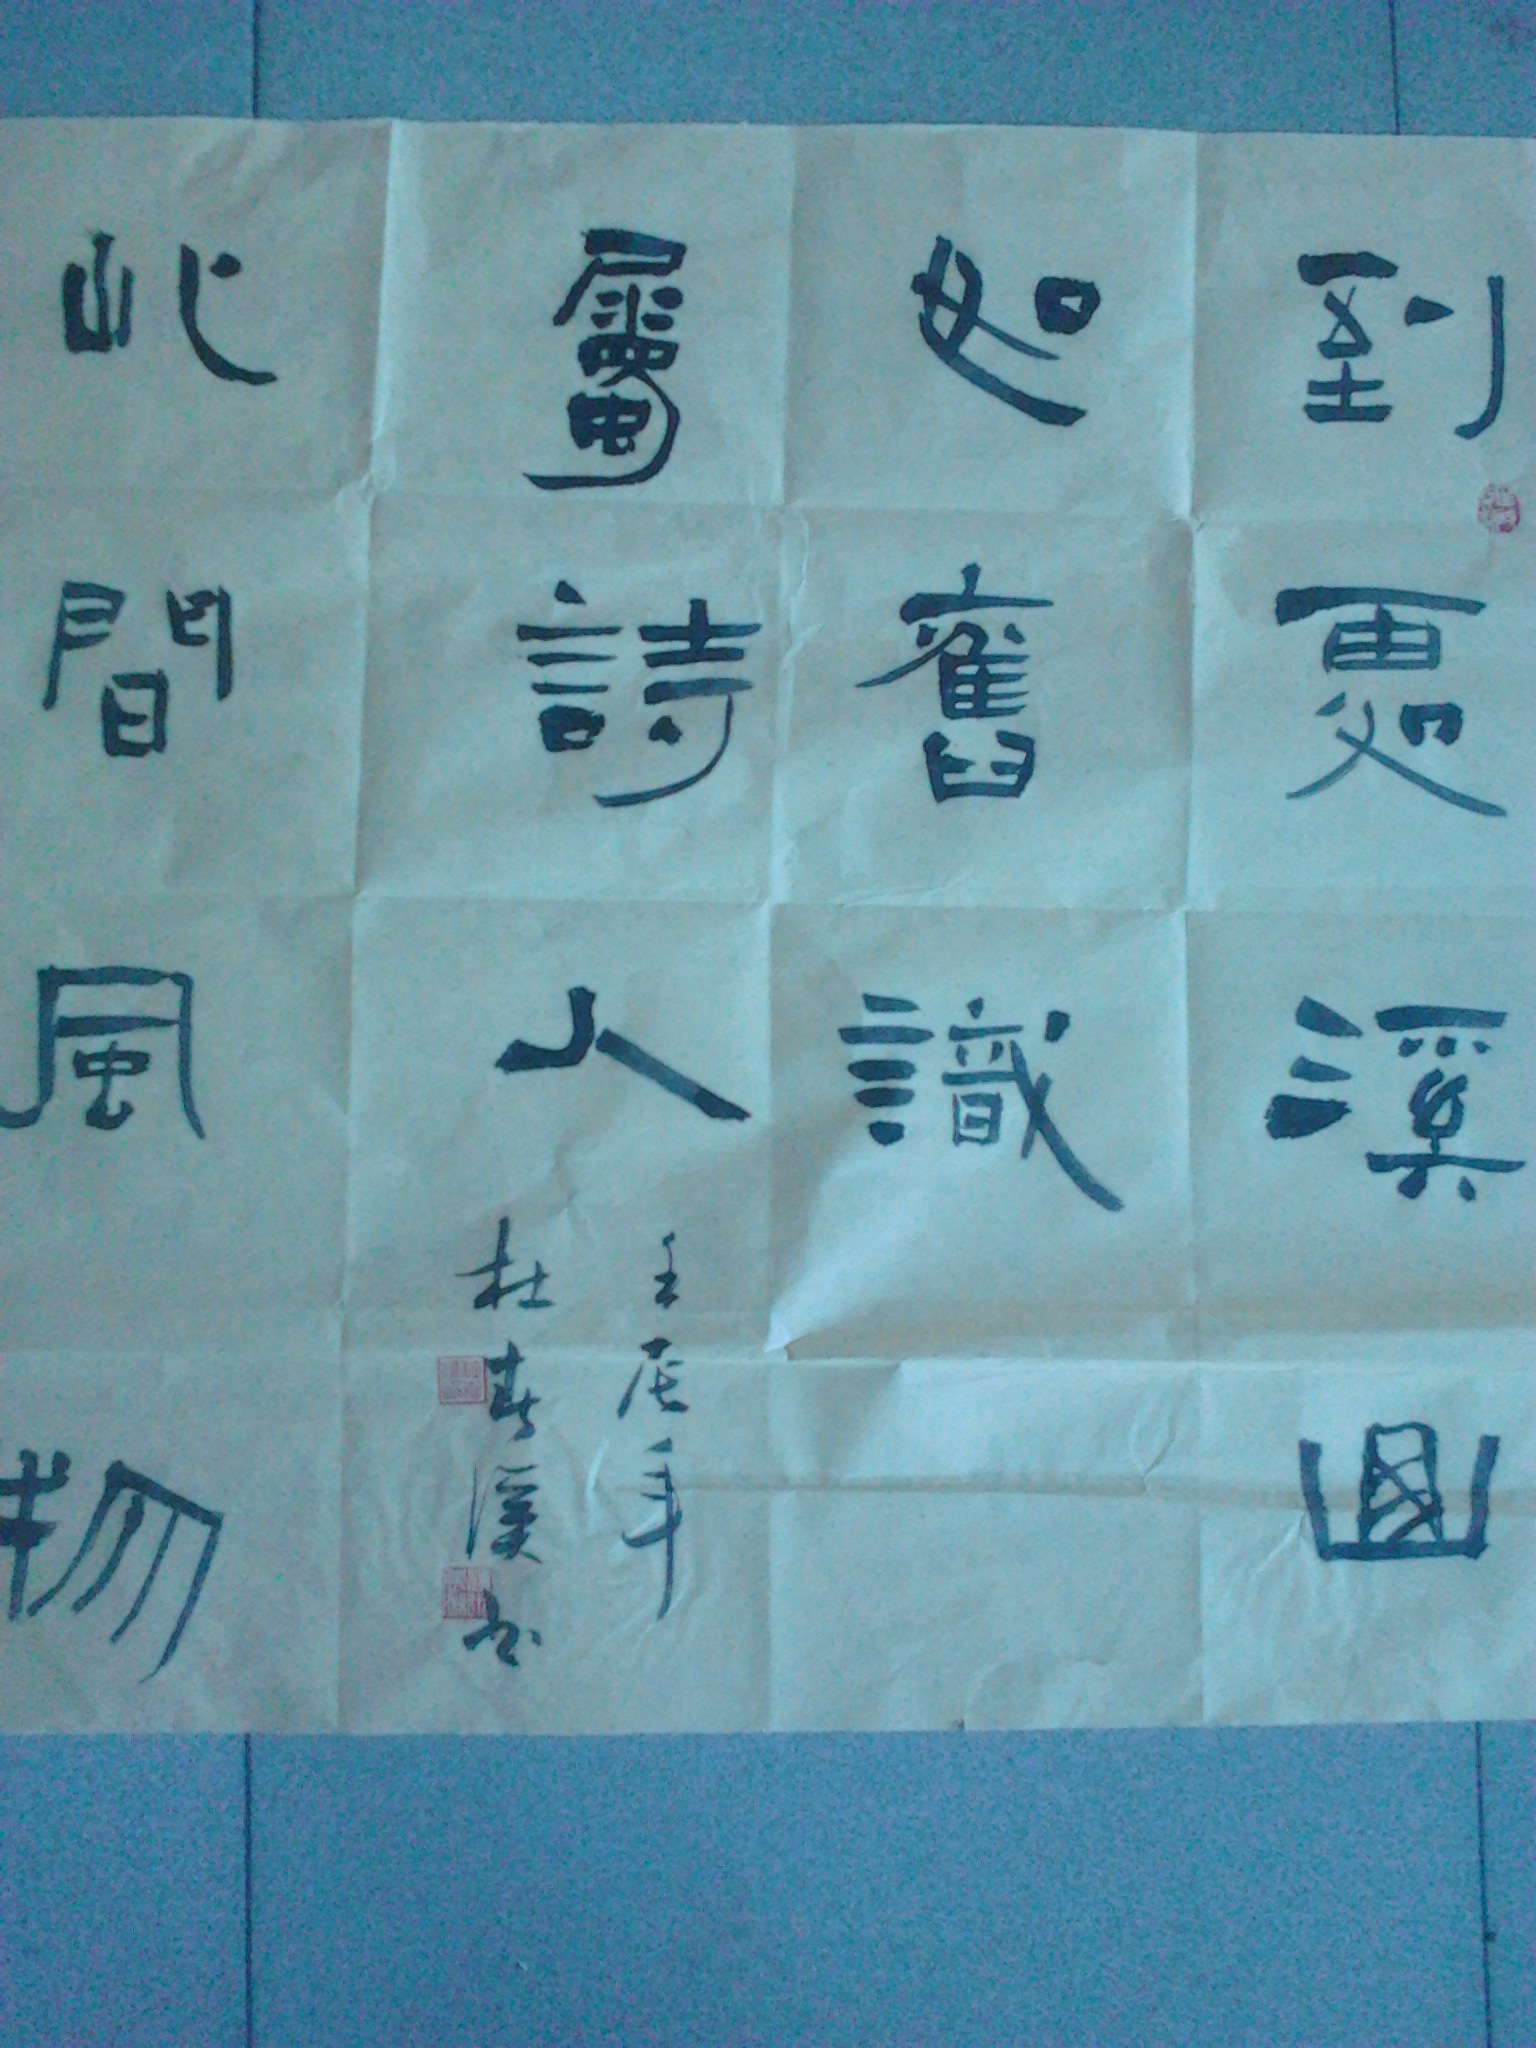 到處溪山
如舊識
此間風物
屬詩人
壬辰年
杜春溪书